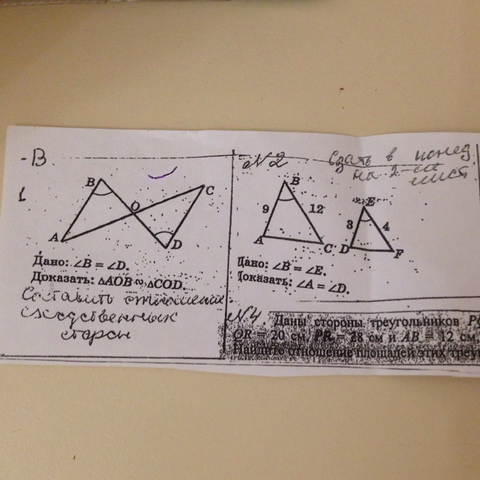 -В
1
B
C
O
A
D
Дано: ∠B = ∠D.
Доказать: △AOB ∾ △COD.
Составить отношение
сходственных
сторон
№2 Сдать в понед.
на 2-ом
лист
B
9 12
A C
E
3 4
D F
Дано: ∠B = ∠E.
Доказать: ∠A = ∠D.
№4
Даны стороны треугольников
QR = 20 см, PR = 28 см и AB = 12 см,
Найдите отношение площадей этих